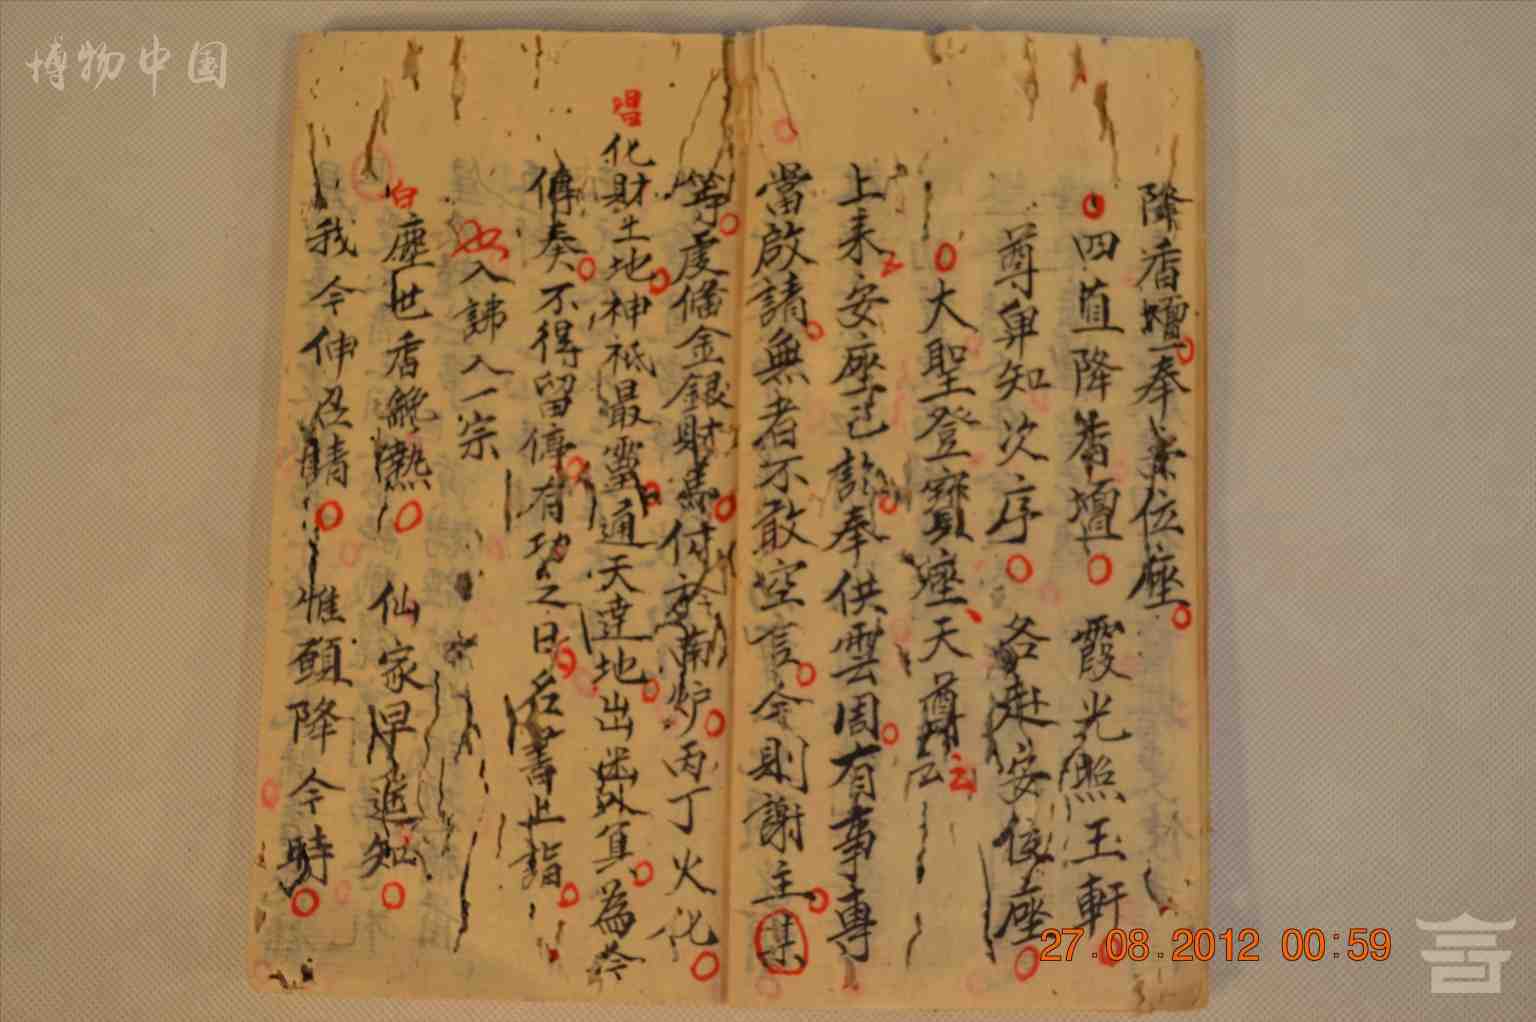 降香壇奉位座
四直降香壇 霞光照玉軒
尊卑知次序 各赴安位座
大聖登寶座天尊
上来安座已訖奉供雲周有事專
當啟請無者不敢空言今則謝主某
等虔俻金銀財馬付於南炉丙丁火化
唱
化財土地神祇最靈通天達地出幽入冥為吾
傳奏不得留停有功之日名書上詣
入諦入一宗
白
塵世香纔热 仙家早遥知
我今伸召請 惟願降今時
博物中国
27.08.2012 00:59